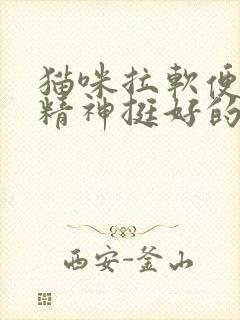 猫咪拉軟便
精神挺好的
西安-釜山